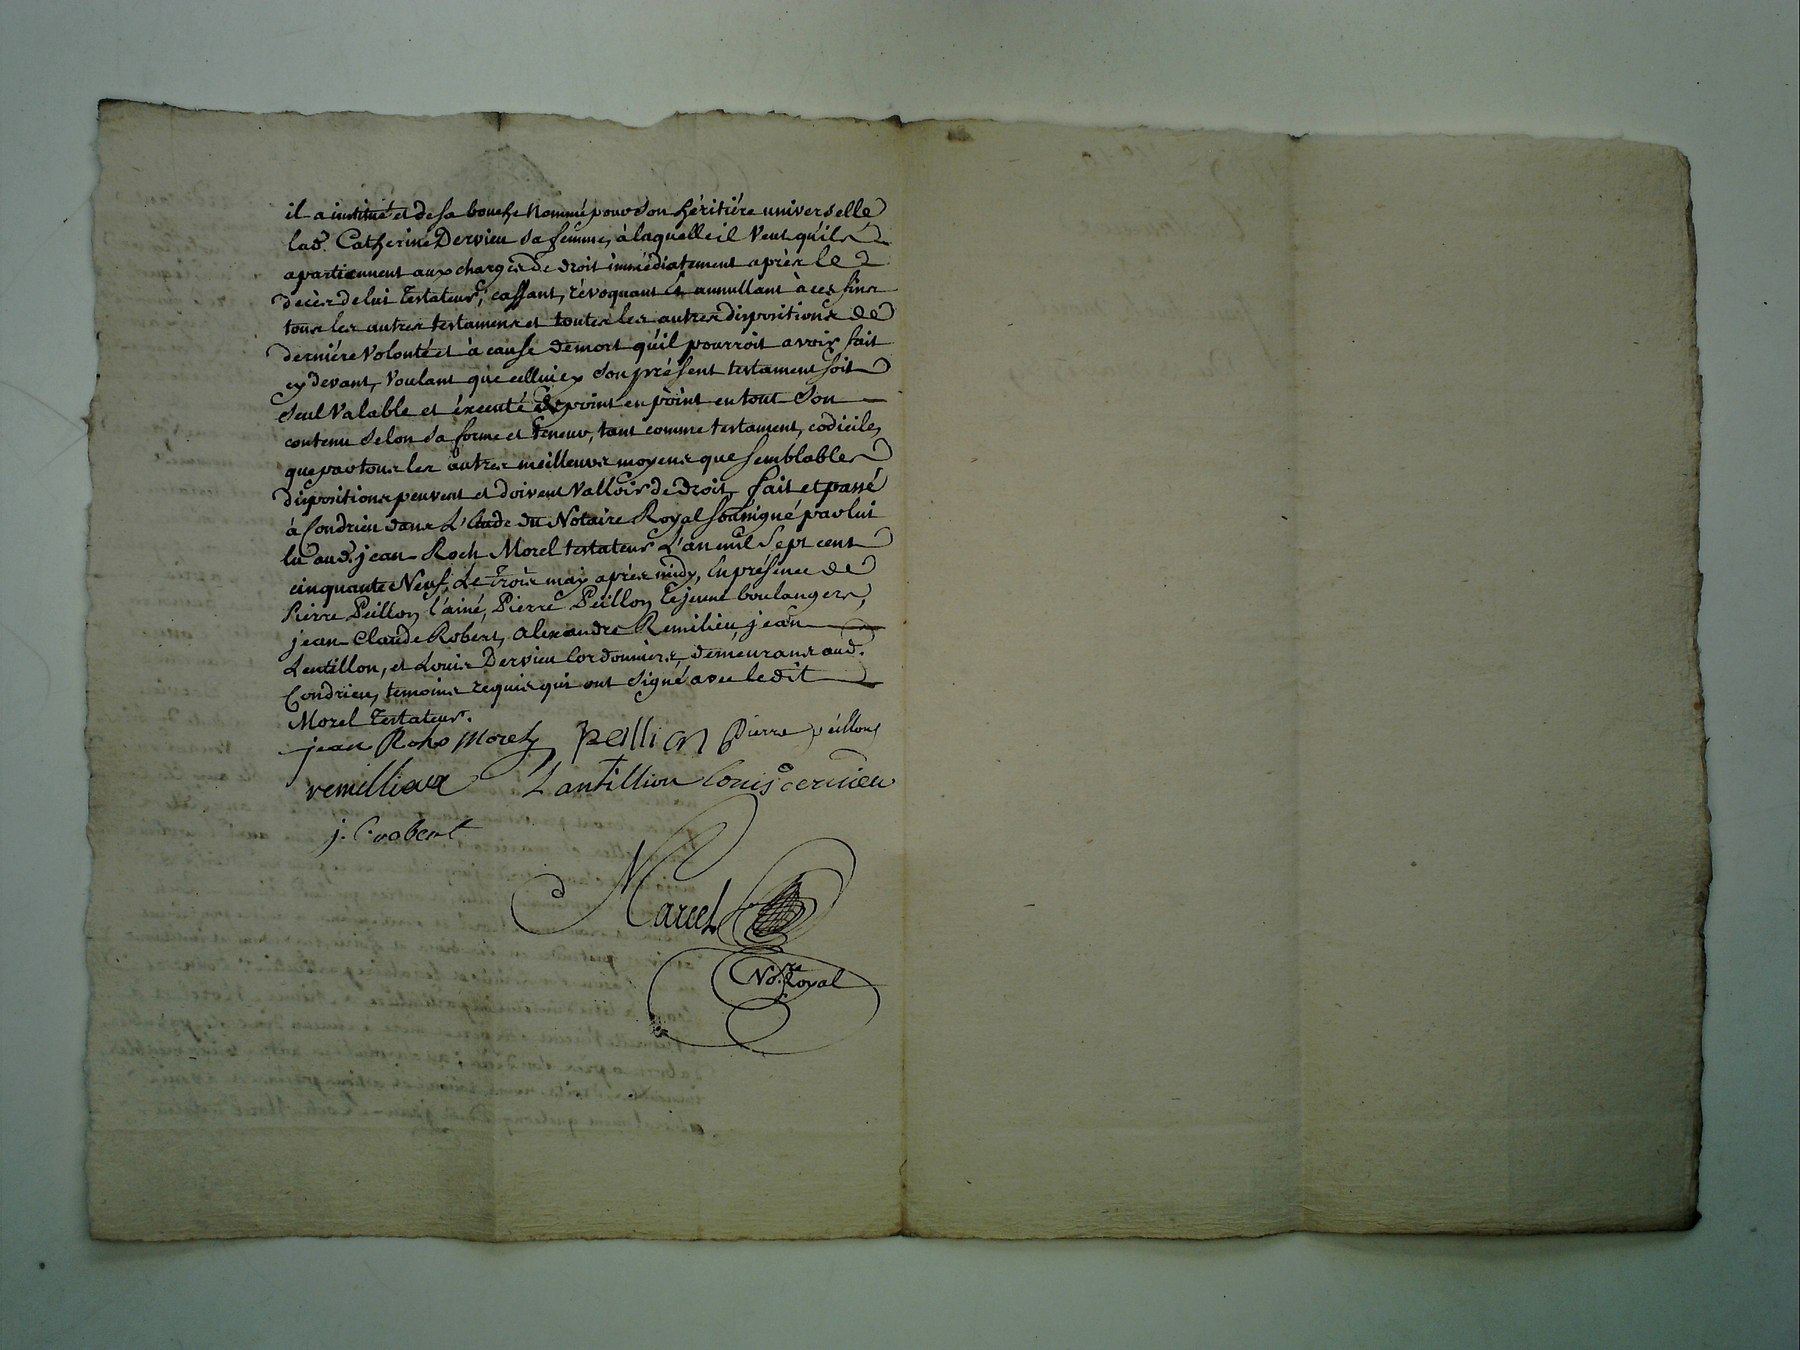 il a institué et de sa bouche nommé pour son héritiére universelle
lad. Catherine Dervieu sa femme, à laquelle il veut qu'ils
apartiennent aux charges de droit immédiatement après le
decès de lui testateur, cassant, révoquant et annullant à ces fins
tous les autres testamens et toutes les autres dispositions de
derniére volonté et à cause de mort qu'il pourroit avoir fait
cy devant, voulant que celluicy son présent testament soit
seul valable et éxecuté de point en point en tout son
contenu selon sa forme et teneur, tant comme testament, codicile,
que par tous les autres meilleurs moyens que semblables
dispositions peuvent et doivent valloir de droit, fait et passé
à Condrieu dans l'étude du Notaire Royal soussigné par lui
lu aud. jean Roch Morel testateur l'an mil sept cent
cinquante Neuf, Le trois may après midy, En présence de
Pierre Peillon l'ainé, Pierre Peillon Lejeune boulangers,
jean Claude Robert, alexandre Remilieu, jean
Lentillon, et Louis Dervieu Cordonniers, demeurans aud.
Condrieu, temoins requis qui ont signé avec ledit
Morel testateur.
jean Roho Morel peillion Pierre peillon
remillieux Lantillion louis deruieu
j. C. robert
Marcel
No.re Royal